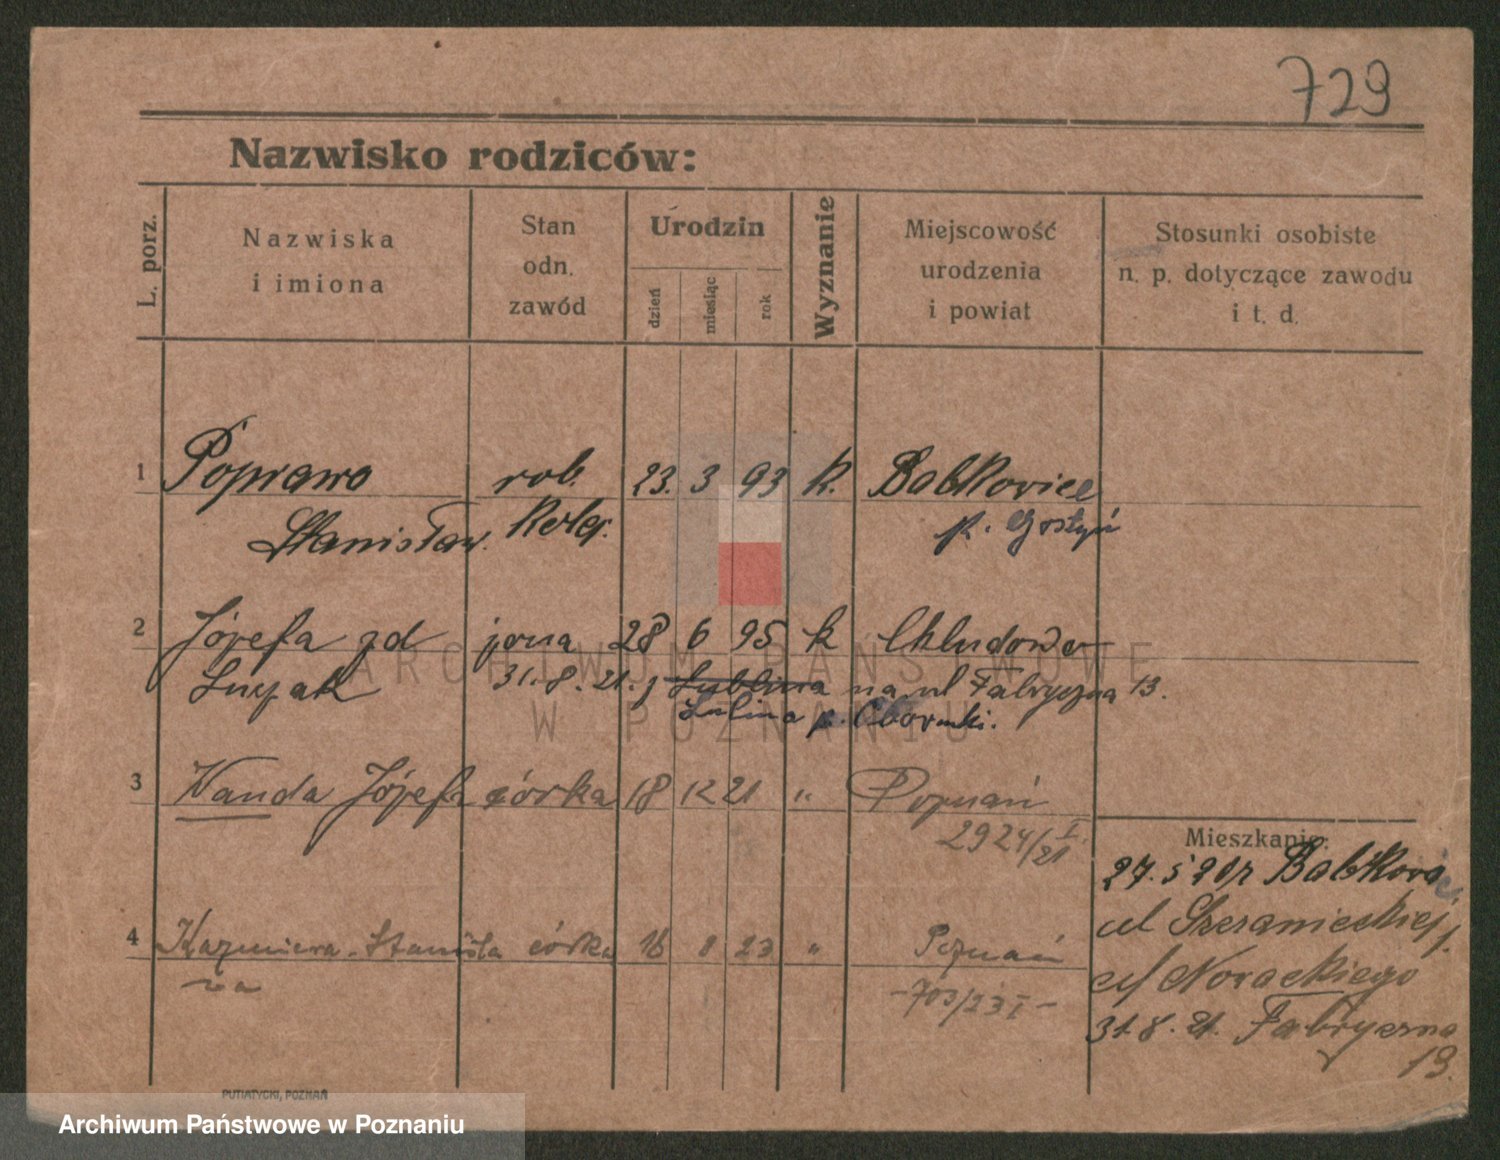 729
Nazwisko rodziców:
L. porz.
Nazwiska
i imiona
Stan
odn.
zawód
Urodzin
dzień
miesiąc
rok
Wyznanie
Miejscowość
urodzenia
i powiat
Stosunki osobiste
n. p. dotyczące zawodu
i t. d.
1 Poprawa rob. 23. 3 93 k. Babkowice
Stanisław. kolej. p. Gostyń
2 Józefa zd żona 28 6 95 k Chludowo
31.8.21. z Lublina na ul Fabryczna 13.
Lulina p. Oborniki.
3 Wanda Józefa córka 18 12 21 " Poznań
2924/21 I.
Mieszkanie:
27.5 20 z Babkowic
4 Kazimiera Stanisła córka 16 1 23 " Poznań
wa -703/23 I-
ul Szeranieckiej
ul Norackiego
31.8.21. Fabryczna
13.
PUTIATYCKI, POZNAŃ
ARCHIWUM PAŃSTWOWE
W POZNANIU
Archiwum Państwowe w Poznaniu